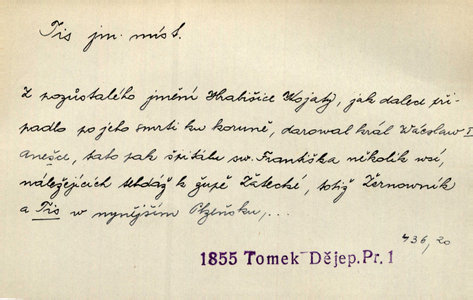 Tis jm. míst.
Z pozůstalého jmění Hrabišice Kojaty, jak dalece při-
padlo po jeho smrti ku koruně, daroval král Wácslaw I
Anešce, tato pak špitálu sw. Františka několik wsí,
náležejících tehdáž k župě Žatecké, totiž Žernowník
a Tis w nynějším Plzeňsku,...
436, 20
1855 Tomek Dějep. Pr. 1